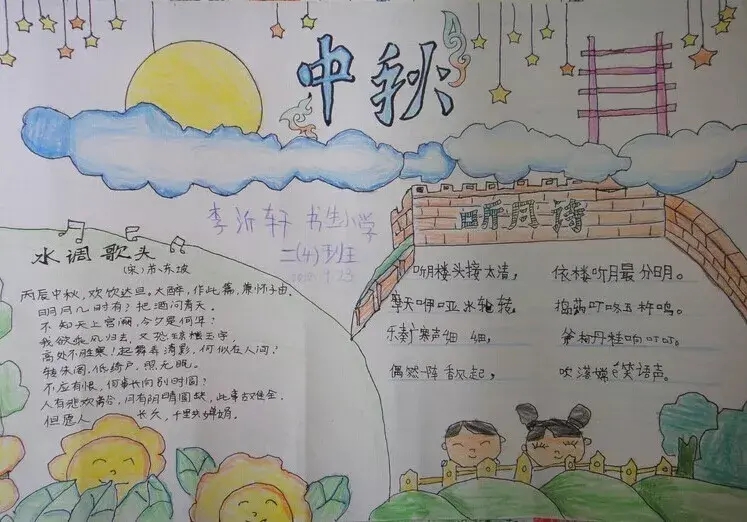 中秋
李沂轩 书生小学
二(4)班
水调歌头
(宋)苏东坡
丙辰中秋,欢饮达旦,大醉,作此篇,兼怀子由.
明月几时有?把酒问青天.
不知天上宫阙,今夕是何年?
我欲乘风归去,又恐琼楼玉宇,
高处不胜寒!起舞弄清影,何似在人间?
转朱阁,低绮户,照无眠.
不应有恨,何事长向别时圆?
人有悲欢离合,月有阴晴圆缺,此事古难全.
但愿人 长久,千里共婵娟.
听月诗
听月楼头接太清, 依楼听月最分明.
摩天咿哑冰轮转, 捣药叮咚玉杵鸣.
乐奏广寒声细 细, 斧柯丹桂响叮叮.
偶然一阵香风起, 吹落嫦娥笑语声.